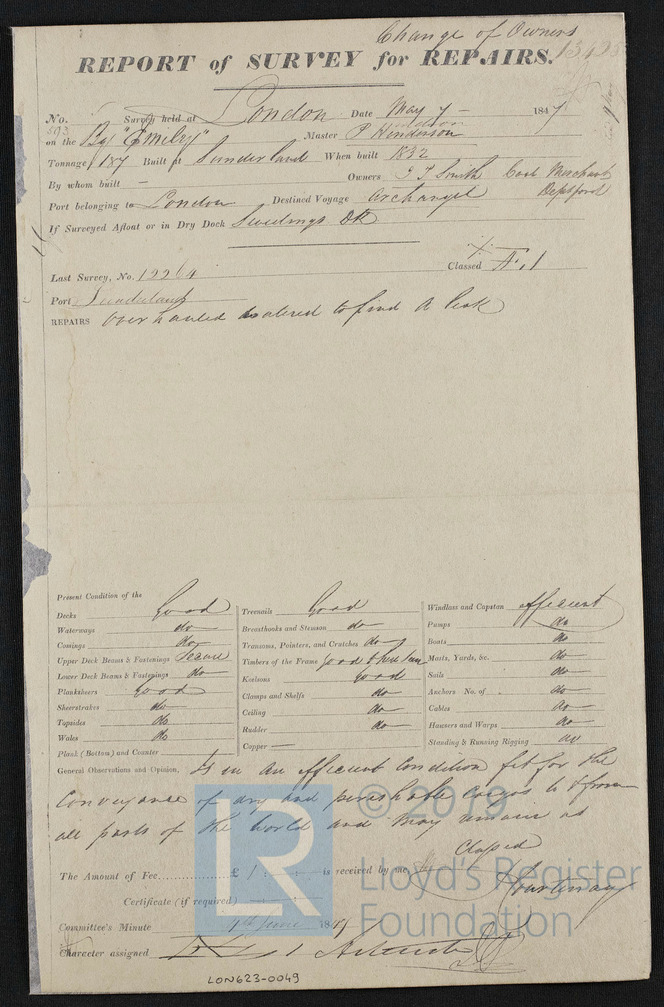 Change of Owners
REPORT of SURVEY for REPAIRS. 13425
No. 593 Survey held at London Date May 7 1847
on the Bg "Emily" Master P Henderson
Tonnage 187 Built at Sunderland When built 1832
By whom built Owners J T Smith Coal Merchant Deptford
Port belonging to London Destined Voyage Archangel
If Surveyed Afloat or in Dry Dock Dk
Last Survey, No. 12264 Classed A.1
Port Sunderland
REPAIRS Over hauled to find A leak
Present Condition of the
Decks Good
Waterways do
Comings do
Upper Deck Beams & Fastenings Secure
Lower Deck Beams & Fastenings do
Planksheers Good
Sheerstrakes do
Topsides do
Wales do
Plank (Bottom) and Counter
Treenails Good
Breasthooks and Stemson do
Transoms, Pointers, and Crutches do
Timbers of the Frame Good
Keelsons Good
Clamps and Shelfs do
Ceiling do
Rudder do
Copper
Windlass and Capstan efficient
Pumps do
Boats do
Masts, Yards, &c. do
Sails do
Anchors No. of do
Cables do
Hawsers and Warps do
Standing & Running Rigging do
General Observations and Opinion, Is in An efficient Condition fit for the
Conveyance of dry and perishable Cargos to & from
all parts of the World and May remain as
Classed
The Amount of Fee £1 is received by me
Courtenay
Certificate (if required)
Committee's Minute 4th June 1847
Character assigned 1
LON623-0049
LR
© 2019
Lloyd's Register
Foundation